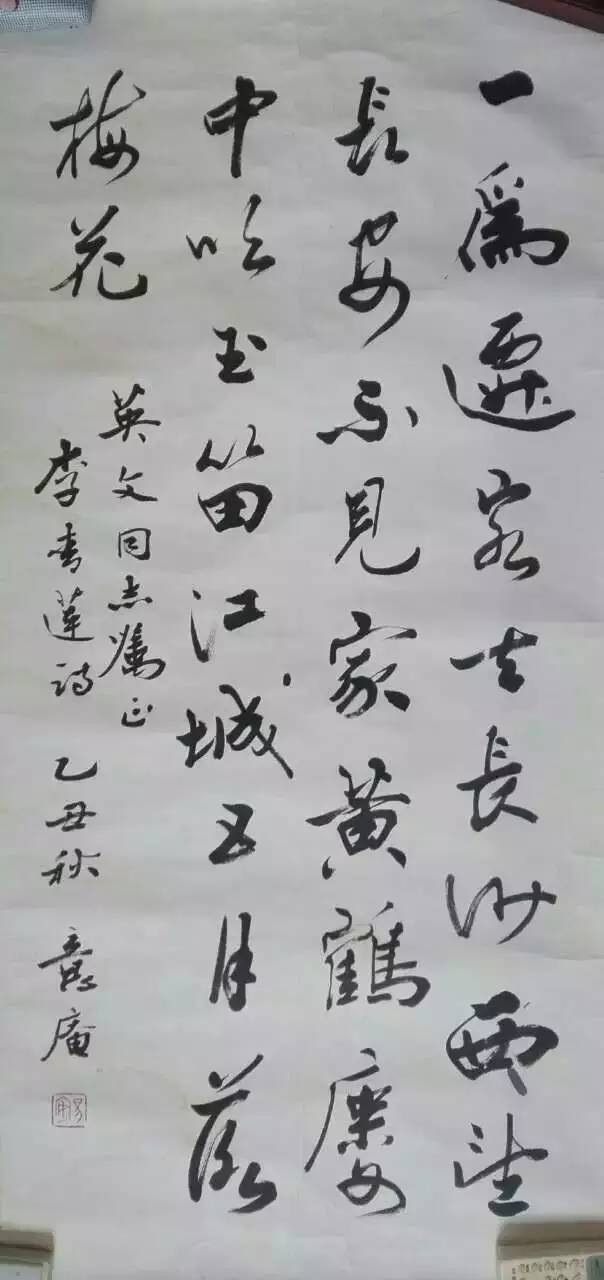 一為遷客去長沙西望
長安不見家黃鶴樓
中吹玉笛江城五月落
梅花
英文同志屬正
李青蓮詩 乙丑秋 庵